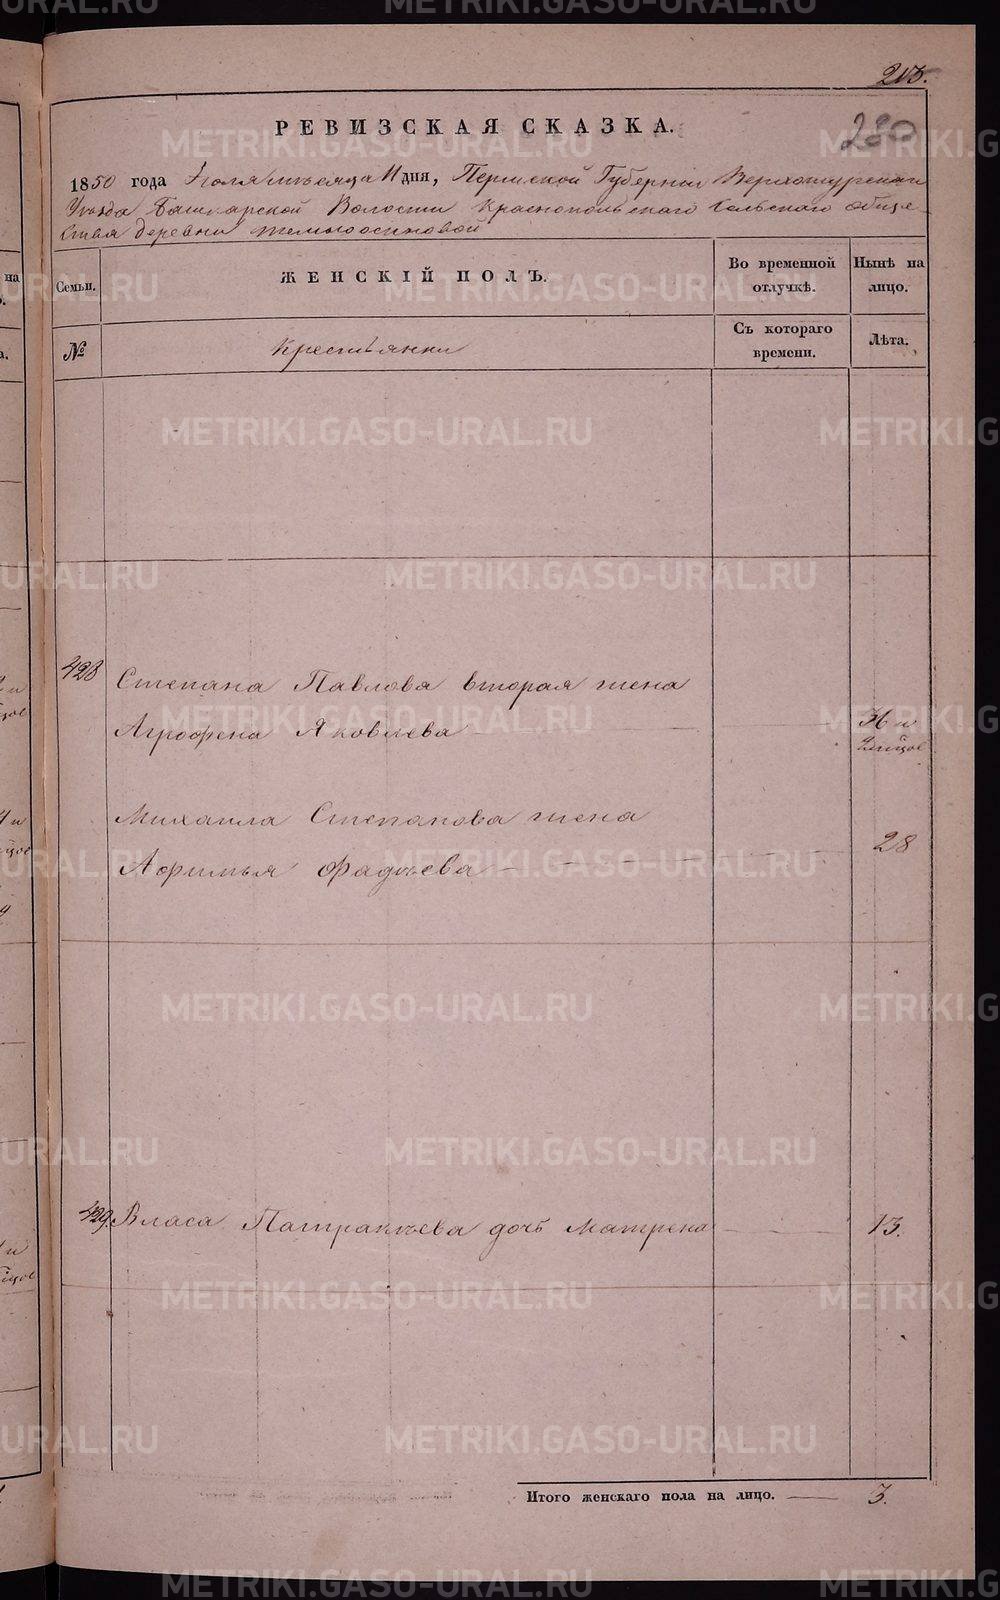 213.
280
РЕВИЗСКАЯ СКАЗКА.
1850 года Июля месяца 11 дня, Пермской Губернии Верхотурскаго
Уезда Башкарской Волости Краснопольскаго Сельскаго обще-
ства деревни
Семьи.
ЖЕНСКІЙ ПОЛЪ.
Во временной отлучкѣ.
Нынѣ на лицо.
№
Крестьянки
Съ котораго времени.
Лѣта.
428
Степана Павлова вторая жена
Агрофена Яковлева
36 и
Михаила Степанова жена
Афимья Фадѣева
28
429.
Власа Патракѣева дочь Матрена
13.
Итого женскаго пола на лицо.
3.
METRIKI.GASO-URAL.RU